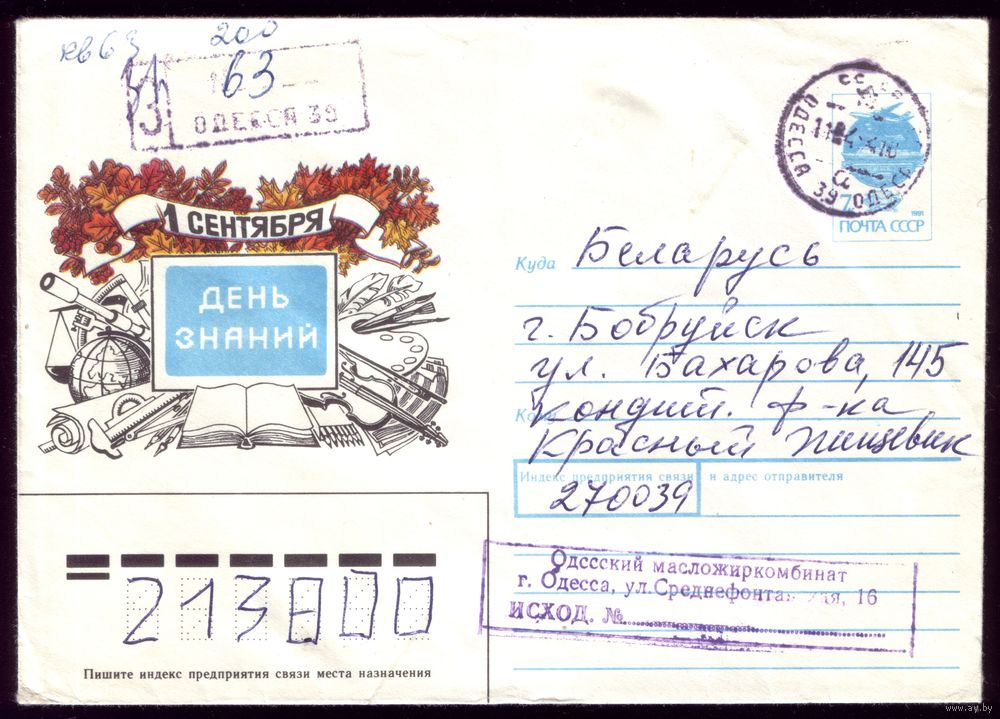 кв 63 200
63
ОДЕССА 39
1 СЕНТЯБРЯ
ДЕНЬ
ЗНАНИЙ
ОДЕССА 39 ОДЕССА
1991
ПОЧТА СССР
Куда Беларусь
г. Бобруйск
ул. Бахарова, 145
Кому кондит. ф-ка
Красный пищевик
Индекс предприятия связи и адрес отправителя
270039
Одссский масложиркомбинат
г. Одесса, ул.Среднефонта кая, 16
ИСХОД. №
213800
Пишите индекс предприятия связи места назначения
www.ay.by